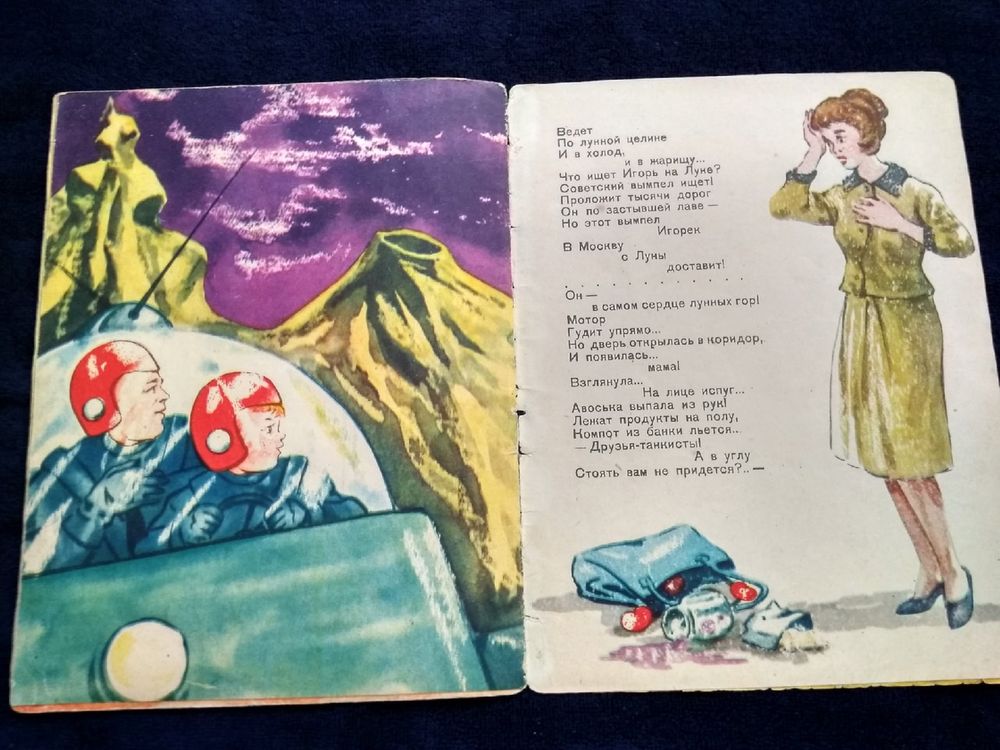 Ведет
По лунной целине
И в холод,
и в жарищу...
Что ищет Игорь на Луне?
Советский вымпел ищет!
Проложит тысячи дорог
Он по застывшей лаве —
Но этот вымпел
Игорек
В Москву
с Луны
доставит!
. . . . . . . . . . . . .
Он —
в самом сердце лунных гор!
Мотор
Гудит упрямо...
Но дверь открылась в коридор,
И появилась...
мама!
Взглянула...
На лице испуг...
Авоська выпала из рук!
Лежат продукты на полу,
Компот из банки льется...
— Друзья-танкисты!
А в углу
Стоять вам не придется?.. —